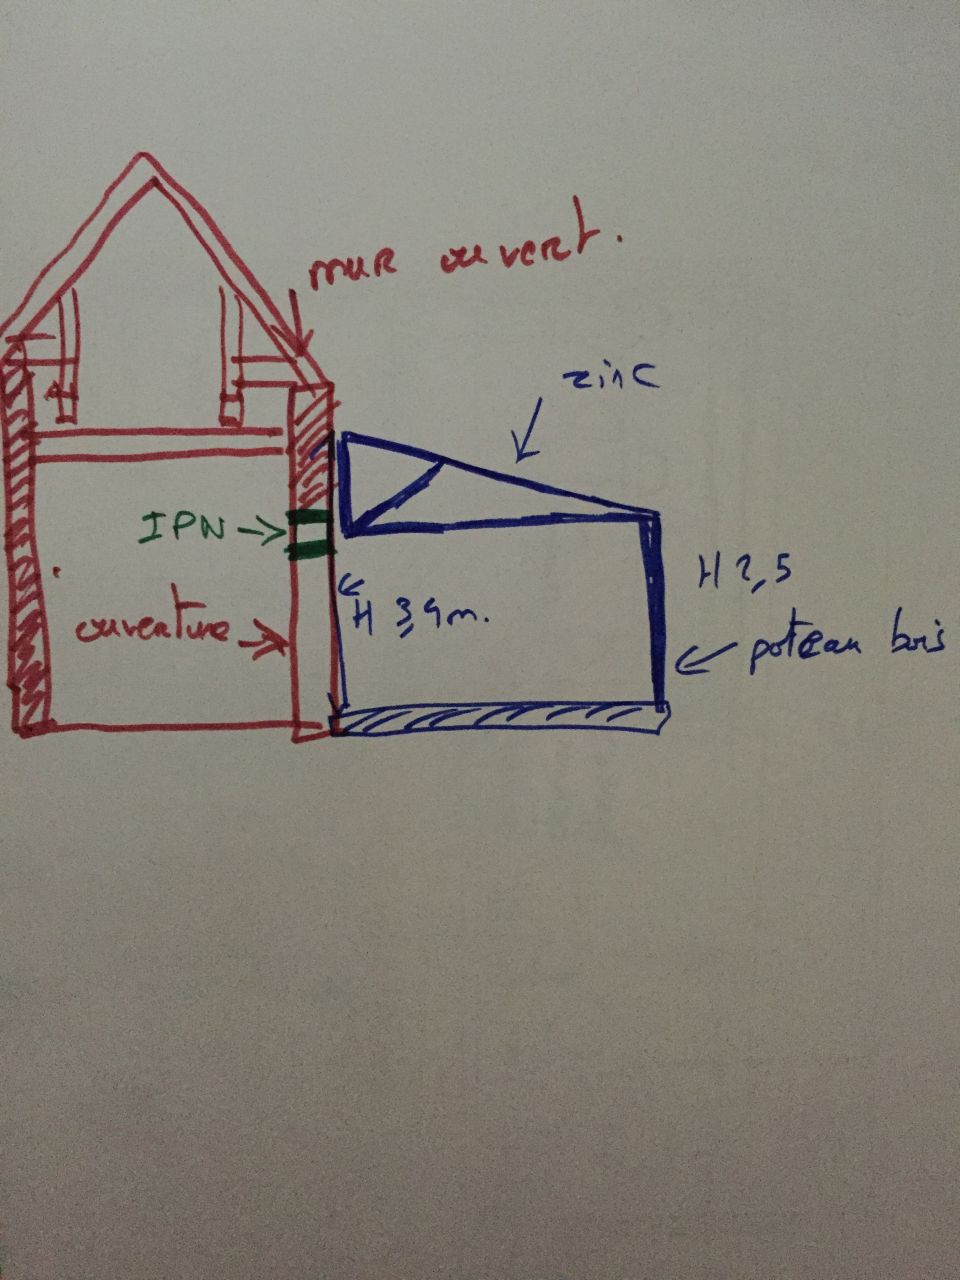 mur ouvert.
zinc
IPN
H 2,5
H 3,4m.
ouverture
poteau bois